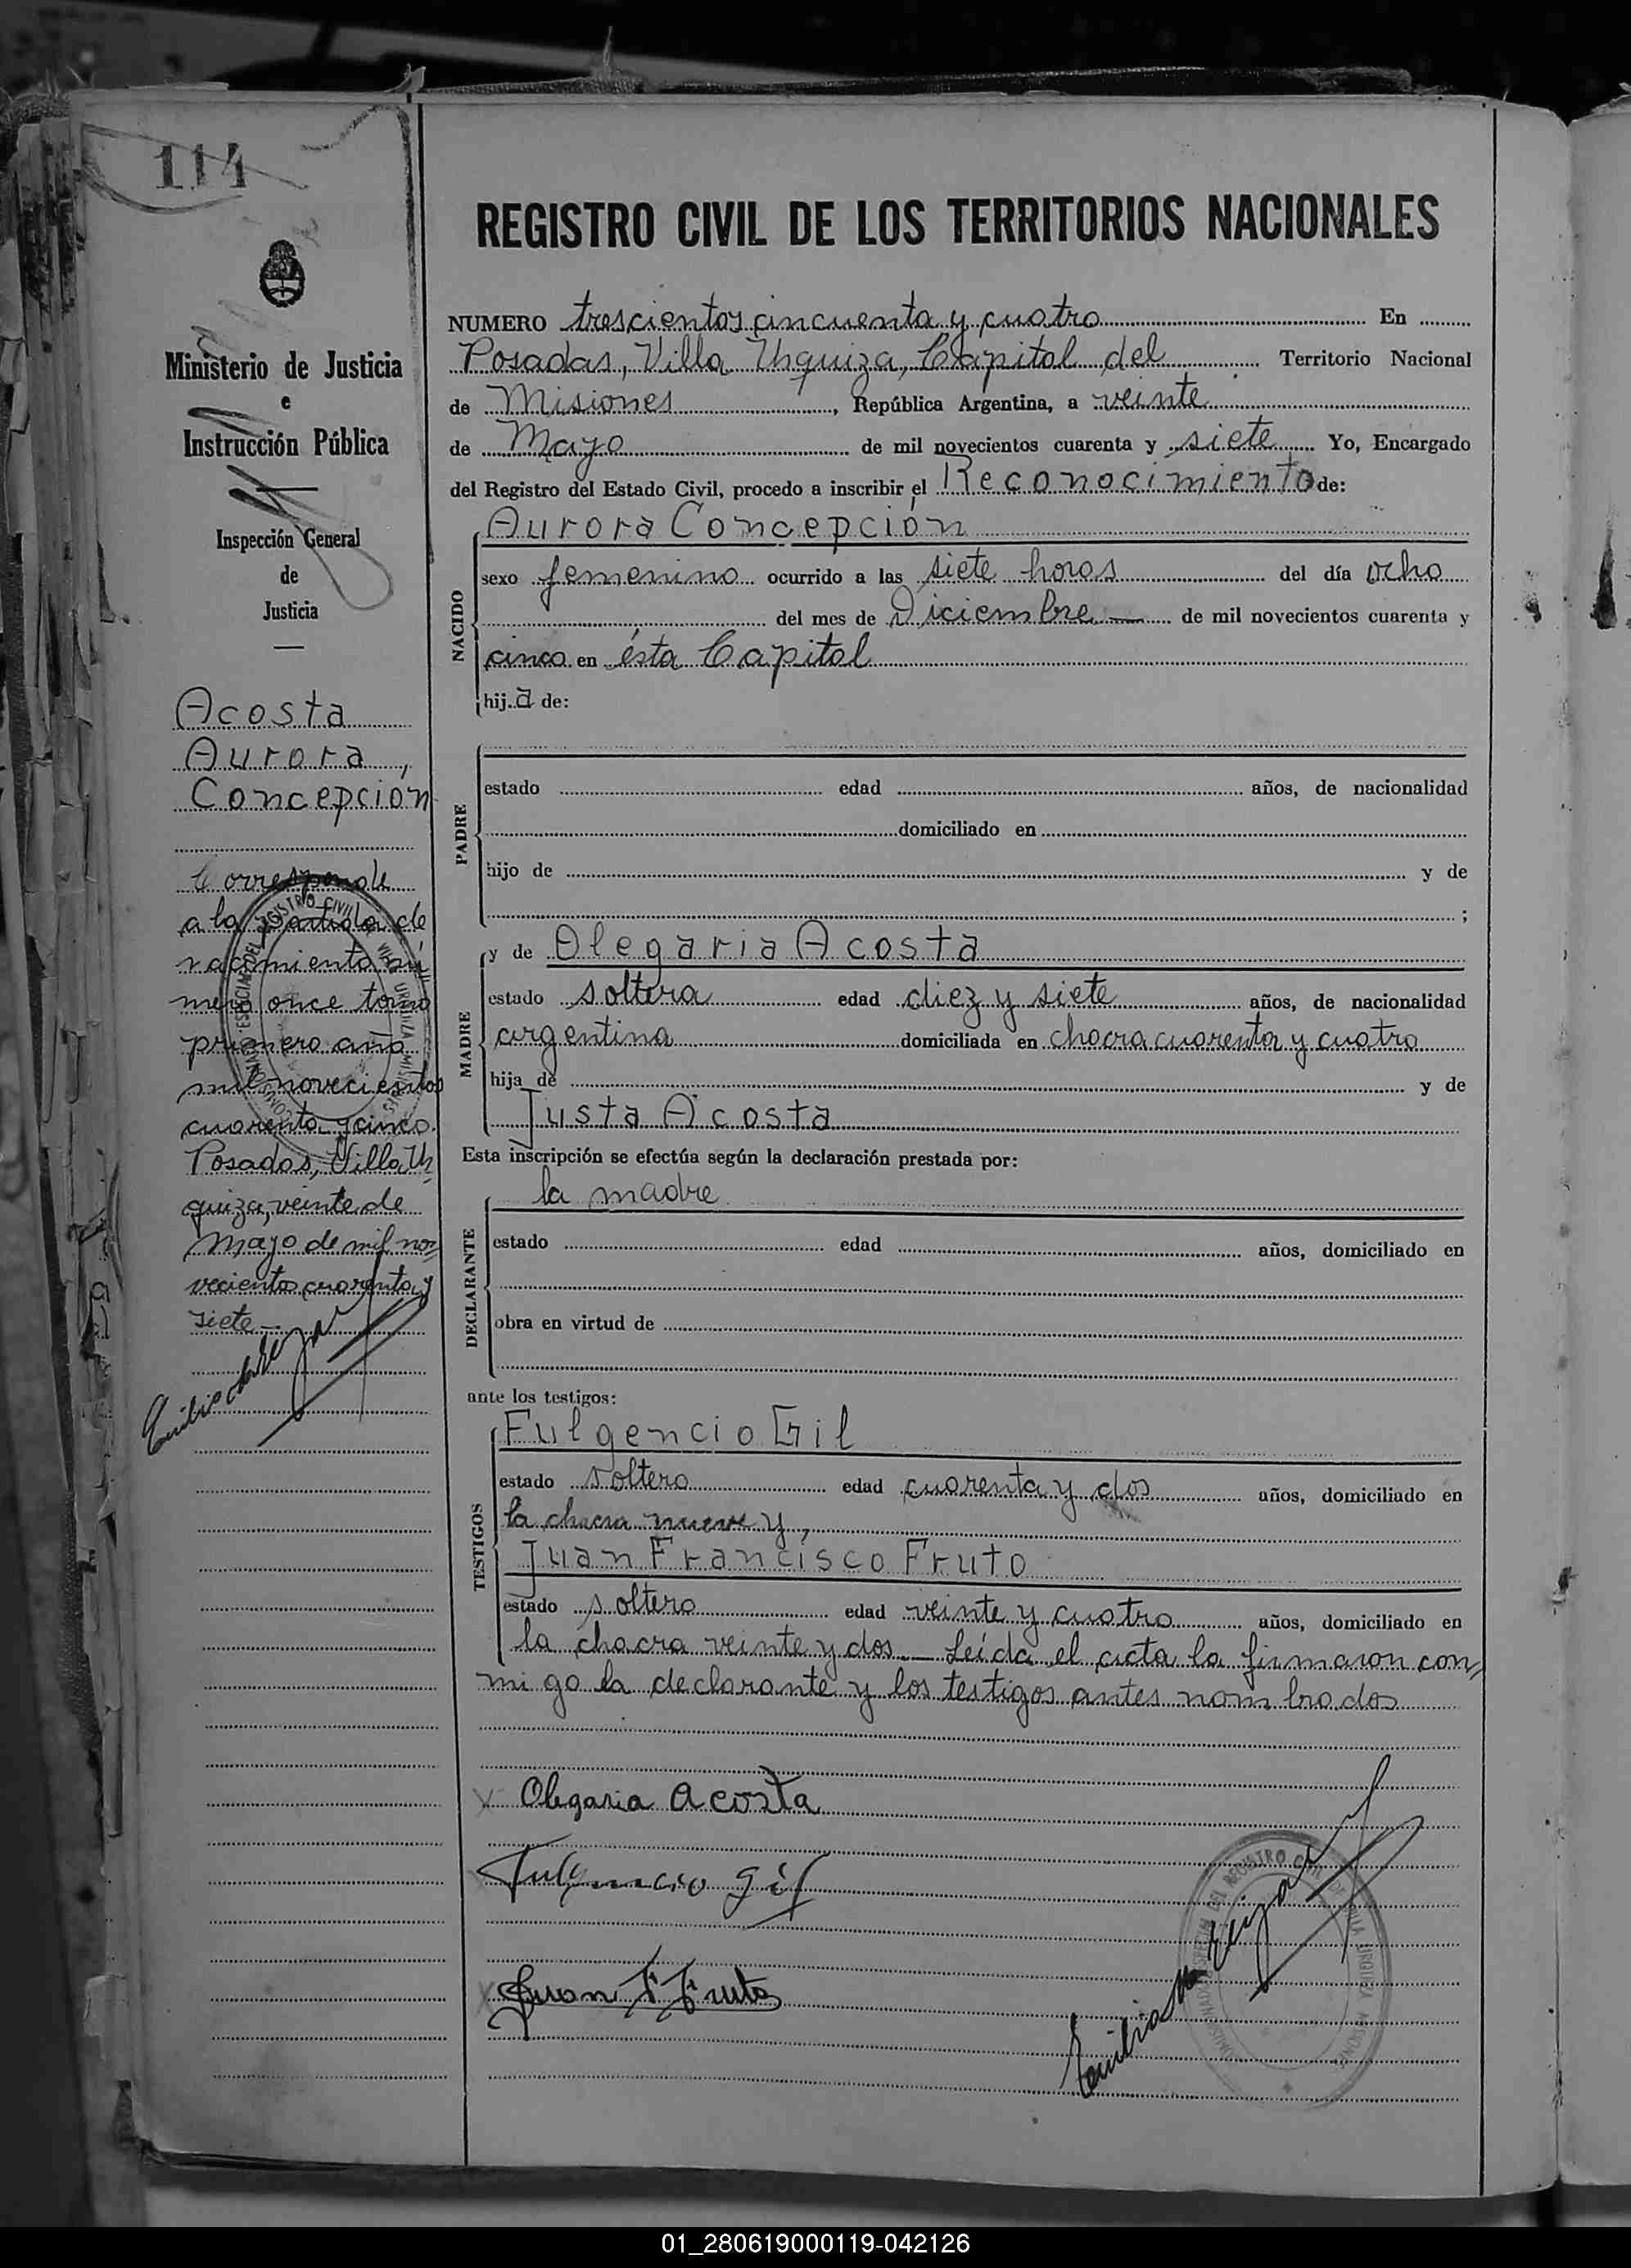 114
REGISTRO CIVIL DE LOS TERRITORIOS NACIONALES
Ministerio de Justicia
e
Instrucción Pública
Inspección General
de
Justicia
Acosta
Aurora,
Concepción
Corresponde
a la partida de
nacimiento nú
mero once tomo
primero año
mil novecientos
cuarenta y cinco.
Posadas, Villa Ur
quiza, veinte de
Mayo de mil no
vecientos cuarenta y
siete.-
NUMERO trescientos cincuenta y cuatro En
Posadas, Villa Urquiza, Capital del Territorio Nacional
de Misiones, República Argentina, a veinte
de Mayo de mil novecientos cuarenta y siete Yo, Encargado
del Registro del Estado Civil, procedo a inscribir el Reconocimiento de:
NACIDO
Aurora Concepción
sexo femenino ocurrido a las siete horas del día ocho
del mes de Diciembre — de mil novecientos cuarenta y
cinco en ésta Capital
hija de:
PADRE
estado edad años, de nacionalidad
domiciliado en
hijo de y de
;
MADRE
y de Olegaria Acosta
estado soltera edad diez y siete años, de nacionalidad
argentina domiciliada en chacra cuarenta y cuatro
hija de y de
Justa Acosta
Esta inscripción se efectúa según la declaración prestada por:
DECLARANTE
la madre
estado edad años, domiciliado en
obra en virtud de
ante los testigos:
TESTIGOS
Fulgencio Gil
estado soltero edad cuarenta y dos años, domiciliado en
la chacra nueve y,
Juan Francisco Fruto
estado soltero edad veinte y cuatro años, domiciliado en
la chacra veinte y dos.— Leída el acta la firmaron con
migo la declarante y los testigos antes nombrados
Olegaria Acosta
Fulgencio Gil
Juan F Fruto
01_280619000119-042126